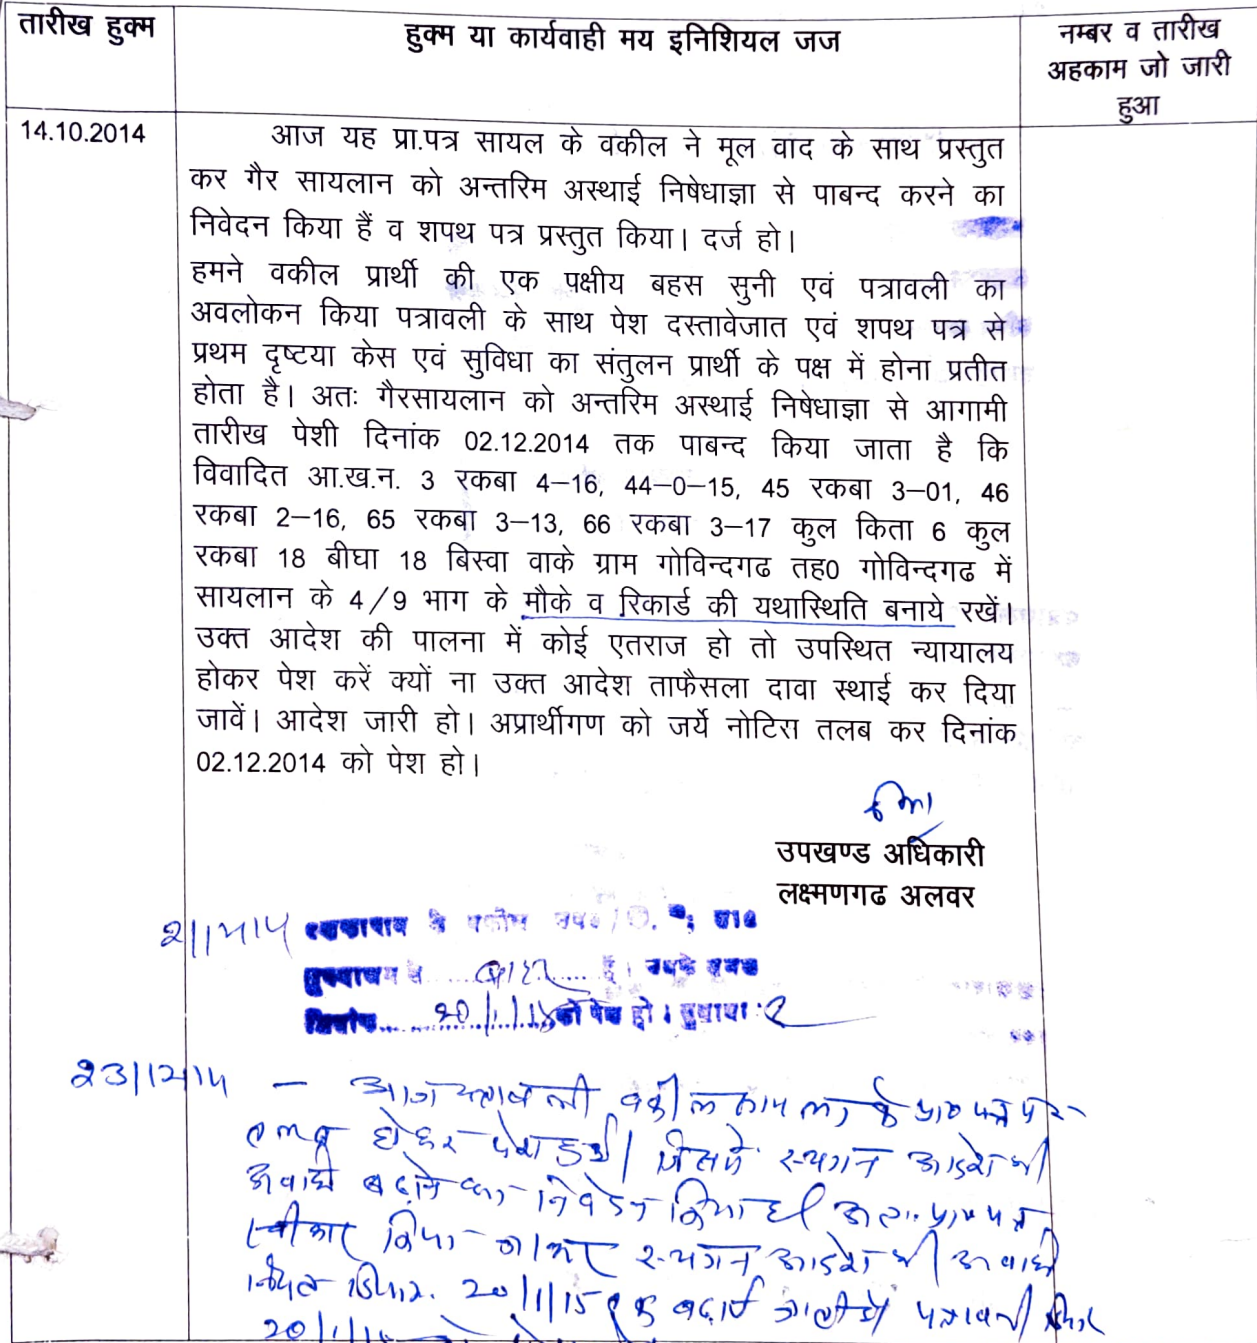 तारीख हुक्म
हुक्म या कार्यवाही मय इनिशियल जज
नम्बर व तारीख
अहकाम जो जारी
हुआ
14.10.2014
आज यह प्रा.पत्र सायल के वकील ने मूल वाद के साथ प्रस्तुत
कर गैर सायलान को अन्तरिम अस्थाई निषेधाज्ञा से पाबन्द करने का
निवेदन किया हैं व शपथ पत्र प्रस्तुत किया। दर्ज हो।
हमने वकील प्रार्थी की एक पक्षीय बहस सुनी एवं पत्रावली का
अवलोकन किया पत्रावली के साथ पेश दस्तावेजात एवं शपथ पत्र से
प्रथम दृष्टया केस एवं सुविधा का संतुलन प्रार्थी के पक्ष में होना प्रतीत
होता है। अतः गैरसायलान को अन्तरिम अस्थाई निषेधाज्ञा से आगामी
तारीख पेशी दिनांक 02.12.2014 तक पाबन्द किया जाता है कि
विवादित आ.ख.न. 3 रकबा 4–16, 44-0-15, 45 रकबा 3–01, 46
रकबा 2–16, 65 रकबा 3–13, 66 रकबा 3–17 कुल किता 6 कुल
रकबा 18 बीघा 18 बिस्वा वाके ग्राम गोविन्दगढ तह0 गोविन्दगढ में
सायलान के 4/9 भाग के मौके व रिकार्ड की यथास्थिति बनाये रखें।
उक्त आदेश की पालना में कोई एतराज हो तो उपस्थित न्यायालय
होकर पेश करें क्यों ना उक्त आदेश ताफैसला दावा स्थाई कर दिया
जावें। आदेश जारी हो। अप्रार्थीगण को जर्ये नोटिस तलब कर दिनांक
02.12.2014 को पेश हो।
उपखण्ड अधिकारी
लक्ष्मणगढ अलवर
दिनांक 20/1/15 को पेश हो।
23/12/14 – आज पत्रावली वकील सायल के प्रा० पत्र पर
तलब होकर पेश हुई। जिसमें स्थगन आदेश की
अवधि बढ़ाने का निवेदन किया है। अतः प्रा० पत्र
स्वीकार किया जाकर स्थगन आदेश की अवधि
20/1/15 तक बढ़ाई जाती है। पत्रावली